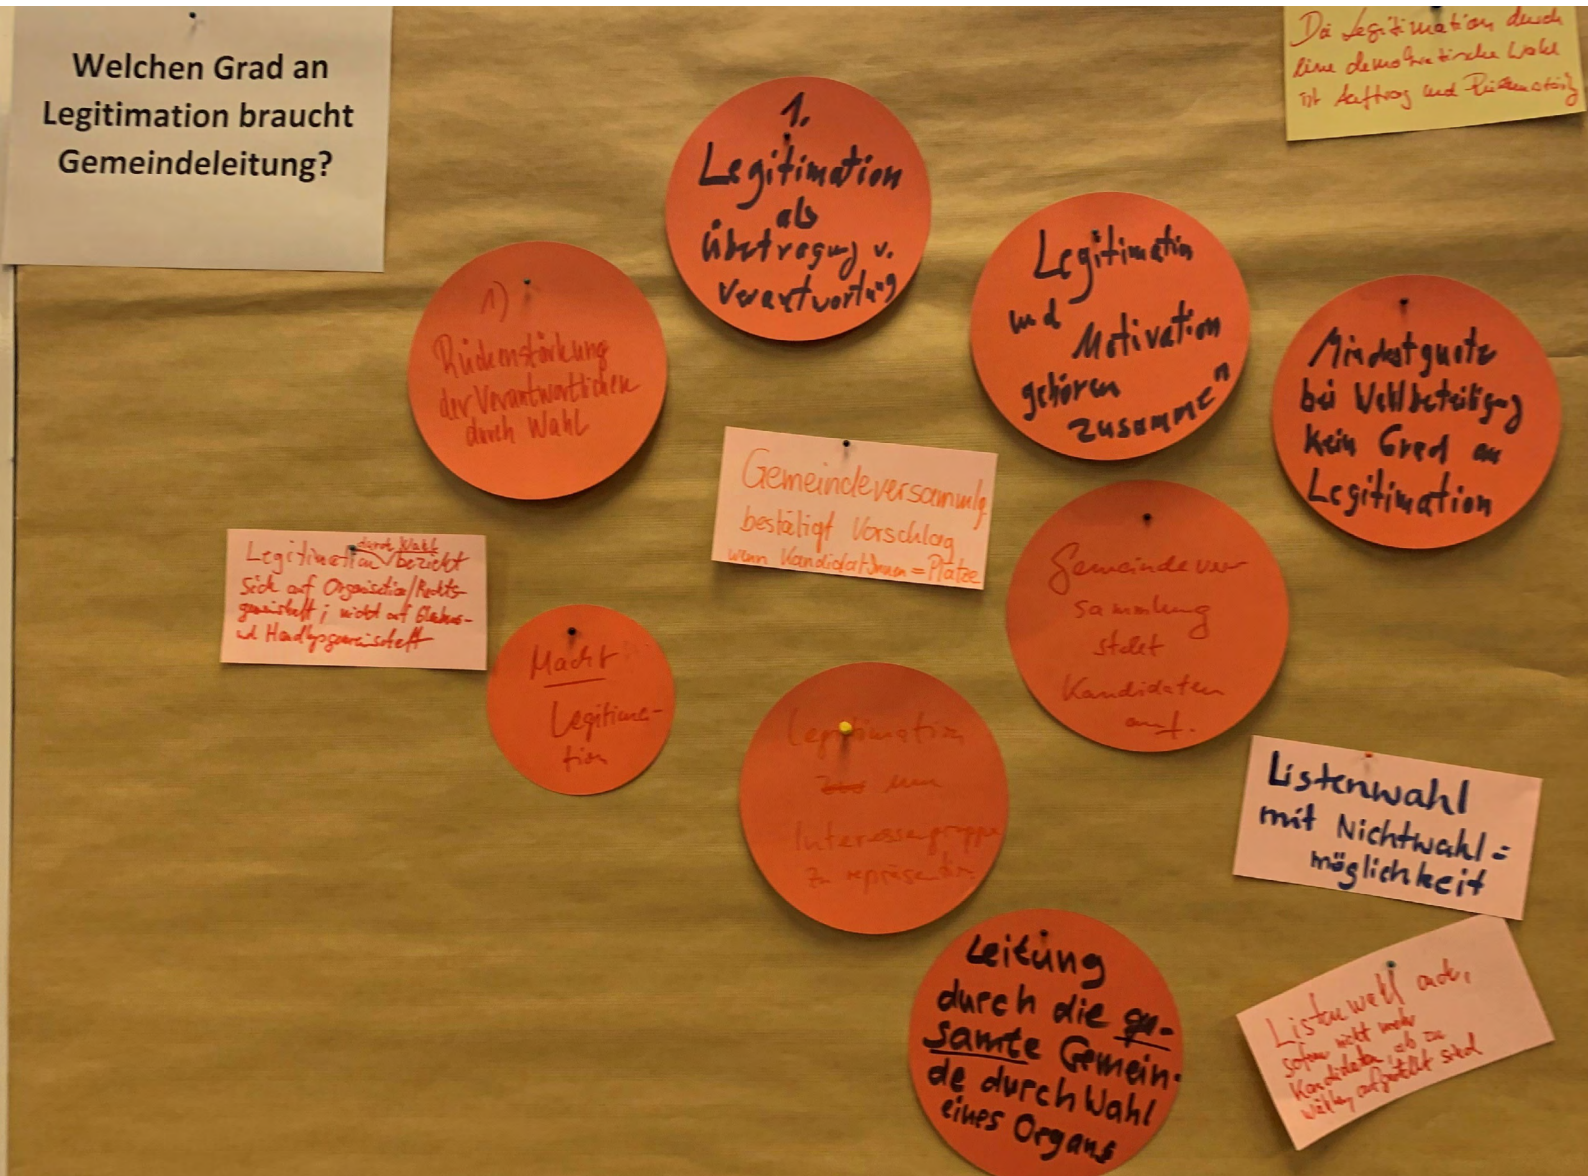 Welchen Grad an
Legitimation braucht
Gemeindeleitung?
Die Legitimation durch
eine demokratische Wahl
ist Auftrag und
1.
Legitimation
als
Übertragung v.
Verantwortung
Legitimation
und
Motivation
gehören
zusammen
1)
Rückenstärkung
der Verantwortlichen
durch Wahl
Mindestquote
bei Wahlbeteiligung
kein Grad an
Legitimation
Gemeindeversammlg.
bestätigt Vorschlag
wenn KandidatInnen = Plätze
durch Wahl
Legitimation bezieht
sich auf Organisation/Rechts-
gemeinschaft; nicht auf Glaubens-
und Handlgsgemeinschaft
Gemeindever
sammlung
stelet
Kandidaten
auf.
Macht
Legitima-
tion
Legitimation
um
Interessengruppe
zu repräsentier.
Listenwahl
mit Nichtwahl=
möglichkeit
Leitung
durch die ge-
samte Gemein-
de durch Wahl
eines Organs
Listenwahl auch,
sofern nicht mehr
Kandidaten, als zu
wählen, aufgestellt sind